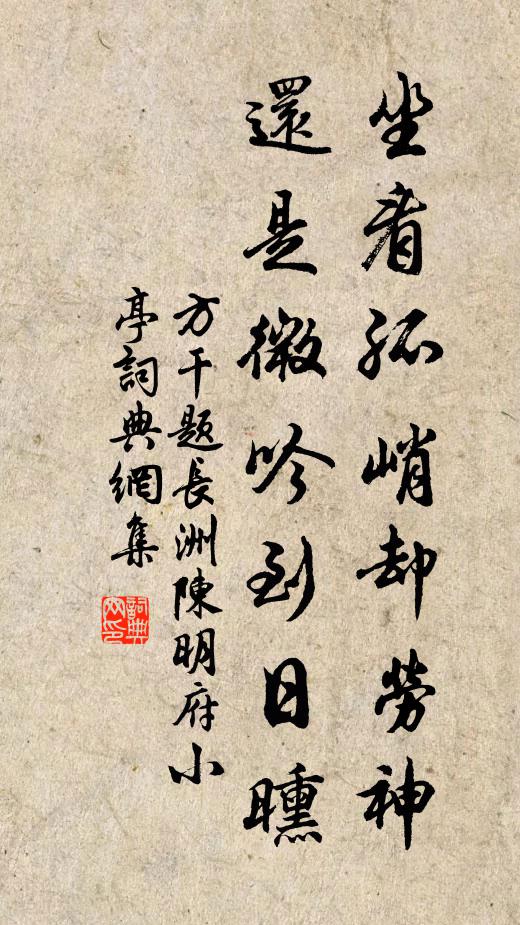 坐看孤峭却勞神
還是微吟到日曛
方干题長洲陳明府小
亭詞典網集
詞典网印